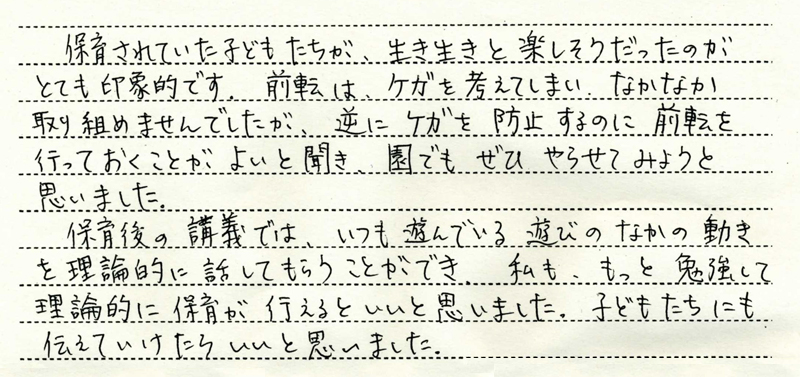 保育されていた子どもたちが、生き生きと楽しそうだったのが
とても印象的です。前転は、ケガを考えてしまい、なかなか
取り組めませんでしたが、逆にケガを防止するのに前転を
行っておくことがよいと聞き、園でもぜひやらせてみようと
思いました。
保育後の講義では、いつも遊んでいる遊びのなかの動き
を理論的に話してもらうことができ、私も、もっと勉強して
理論的に保育が行えるといいと思いました。子どもたちにも
伝えていけたらいいと思いました。